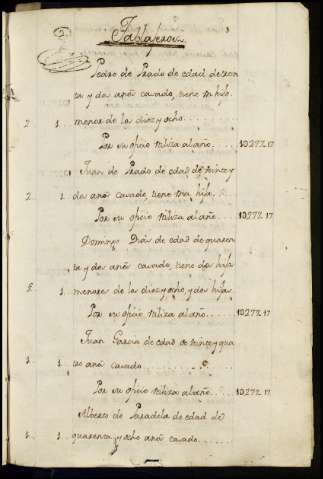 2
Pedro de Prado de edad de
ta y dos años casado, tiene un hijo
2 1 menor de los diez y ocho
Por su oficio utiliza al año 10272 17
Juan de Prado de edad de treinta y
2 1 dos años casado, tiene una hija
Por su oficio utiliza al año 10272 17
Domingo Días de edad de quaren
ta y dos años casado, tiene dos hijos
1 menores de los diez y ocho, y dos hijas
Por su oficio utiliza al año 10272 17
Juan Garcia de edad de treinta y qua
1 tro años casado
Por su oficio utiliza al año 10272 17
Alberto de Paradela de edad de
1 quarenta y ocho años casado